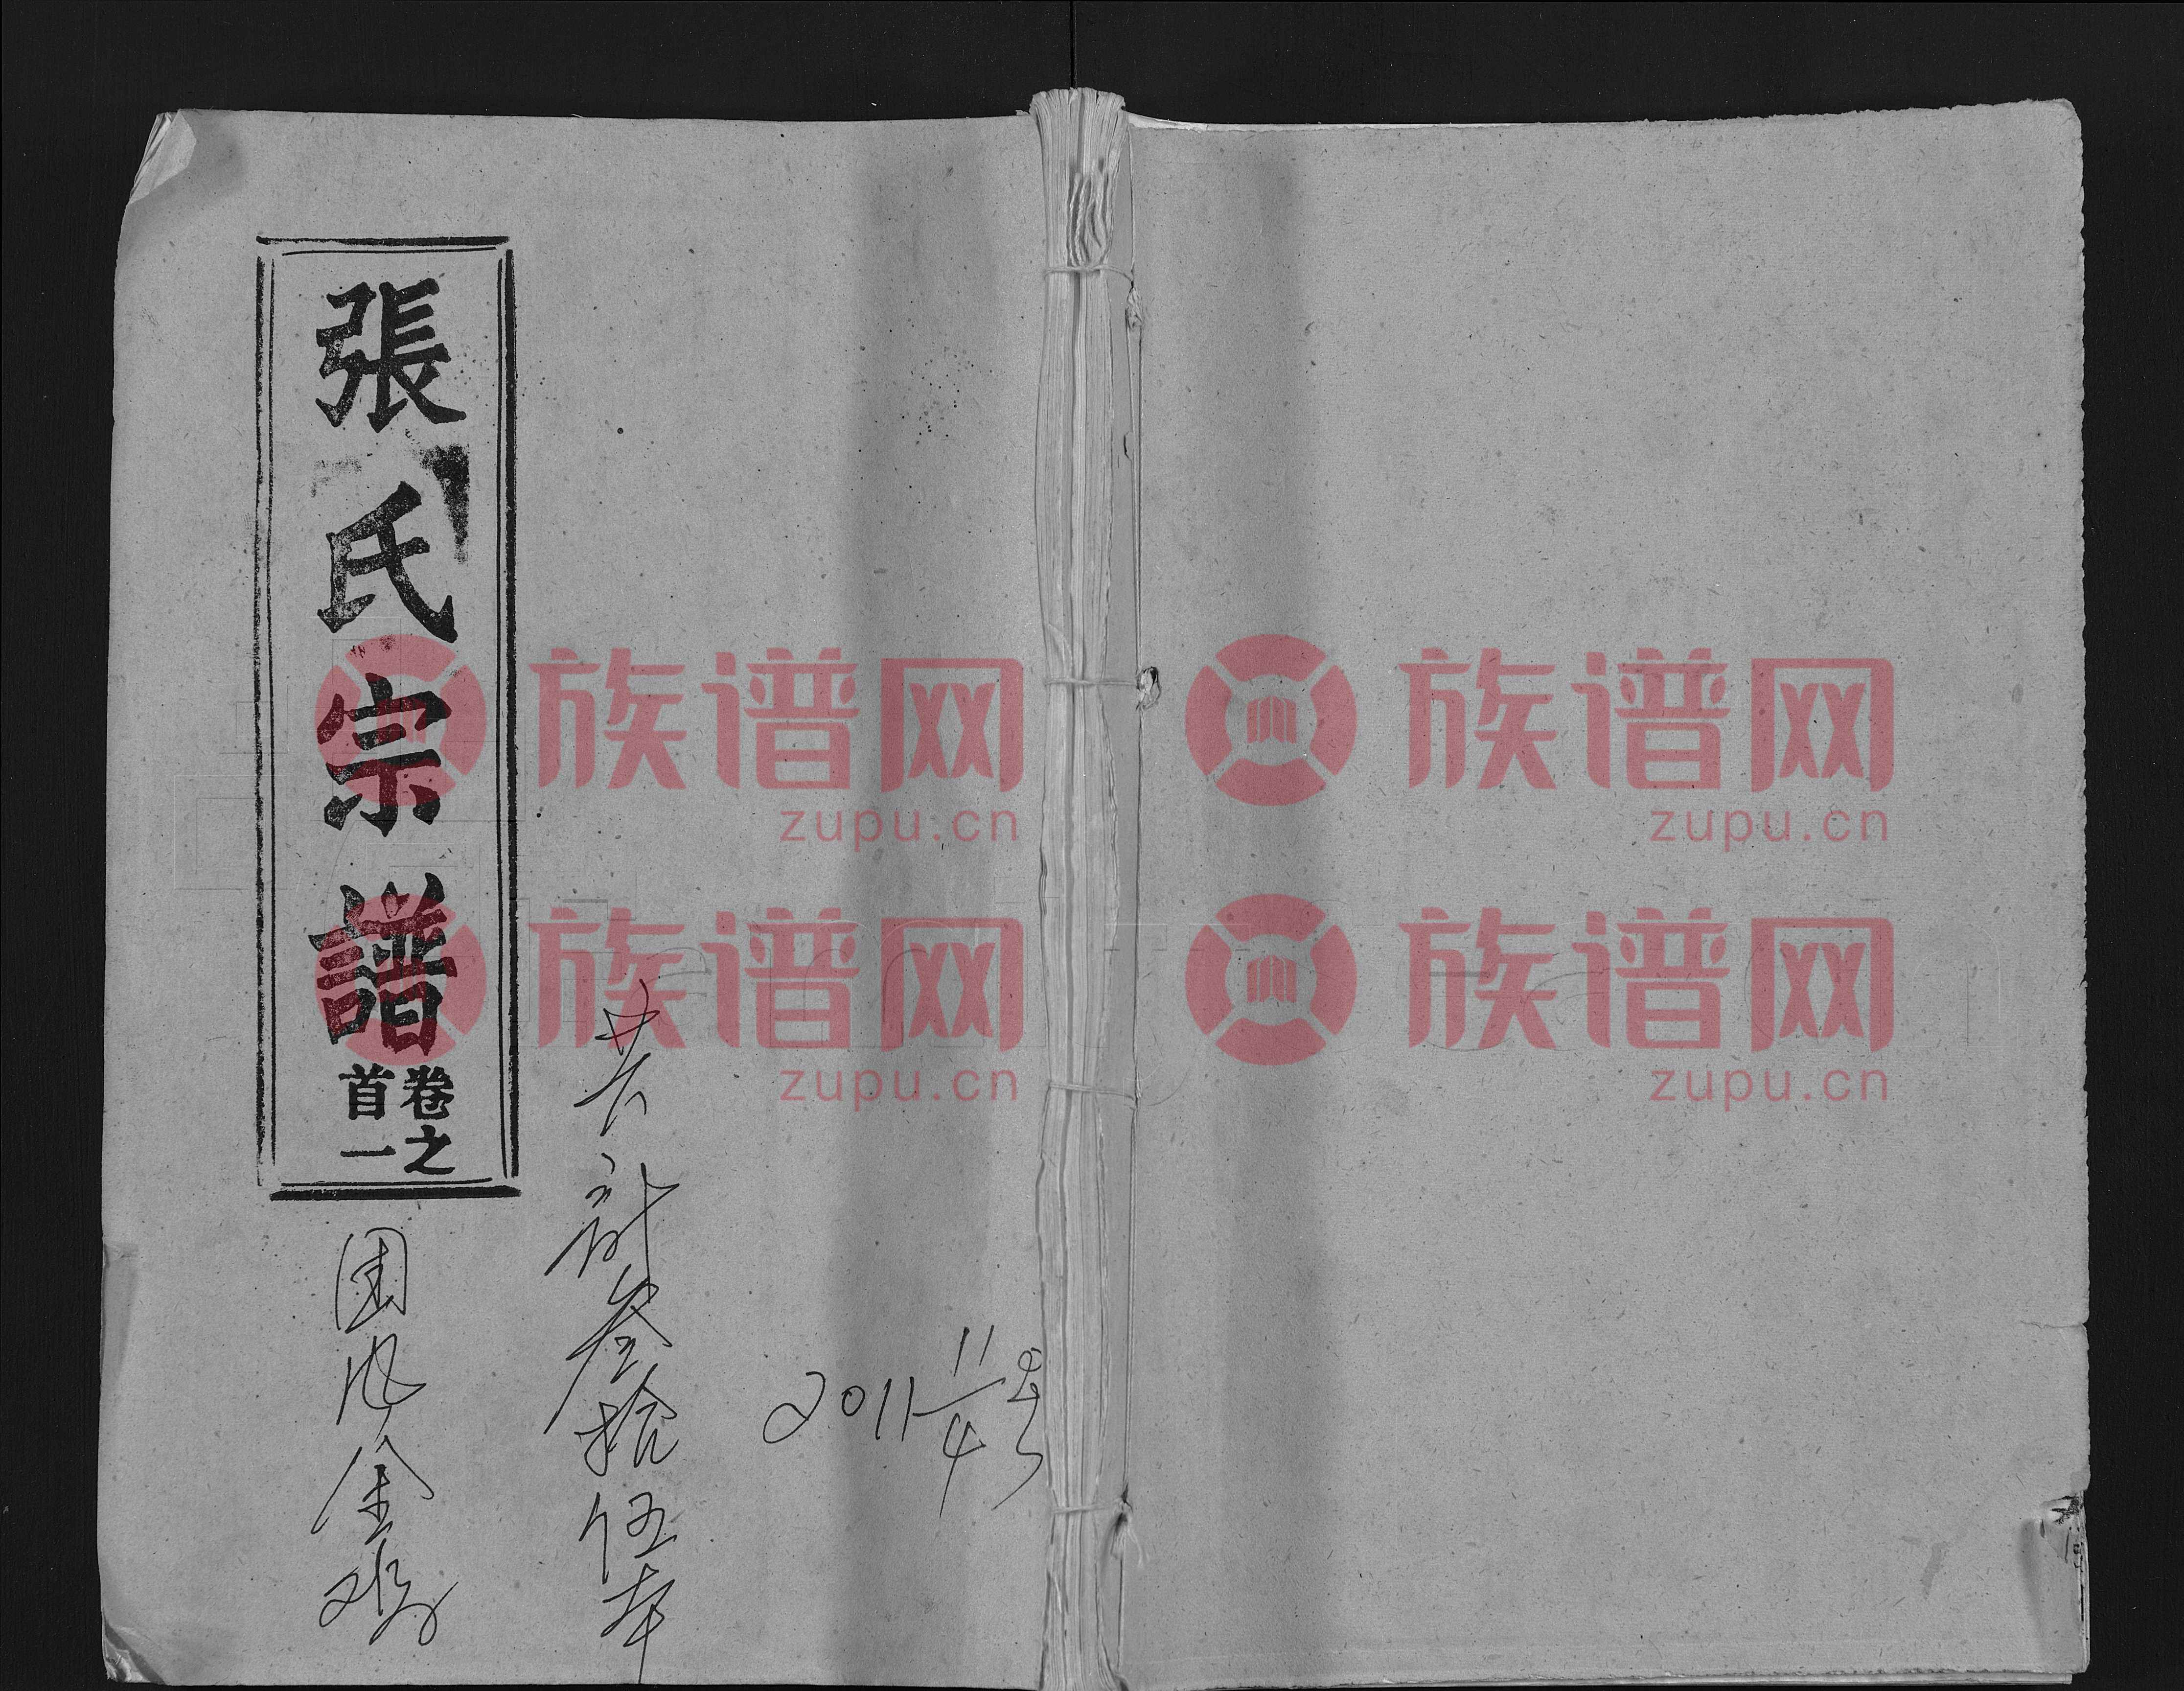 張氏宗譜
卷之
首一
共計叁拾伍本
团风金
2011 11/4
族谱网
zupu.cn
族谱网
zupu.cn
族谱网
zupu.cn
族谱网
zupu.cn